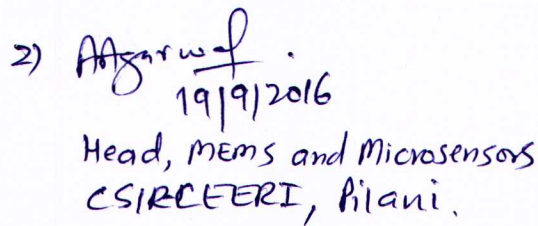 2) AAgarwal.
19/9/2016
Head, MEMS and Microsensors
CSIRCEERI, Pilani.